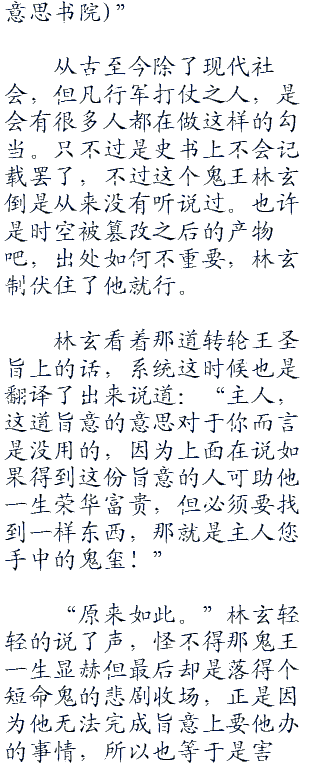 意思书院)”
从古至今除了现代社
会，但凡行军打仗之人，是
会有很多人都在做这样的勾
当。只不过是史书上不会记
载罢了，不过这个鬼王林玄
倒是从来没有听说过。也许
是时空被篡改之后的产物
吧，出处如何不重要，林玄
制伏住了他就行。
林玄看着那道转轮王圣
旨上的话，系统这时候也是
翻译了出来说道：“主人，
这道旨意的意思对于你而言
是没用的，因为上面在说如
果得到这份旨意的人可助他
一生荣华富贵，但必须要找
到一样东西，那就是主人您
手中的鬼玺！”
“原来如此。”林玄轻
轻的说了声，怪不得那鬼王
一生显赫但最后却是落得个
短命鬼的悲剧收场，正是因
为他无法完成旨意上要他办
的事情，所以也等于是害